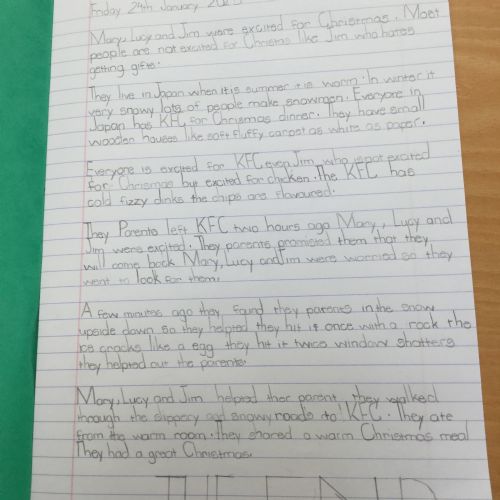 Friday 24th January
Mary, Lucy and Jim were excited for Christmas. Most
people are not excited for Christas like Jim who hates
getting gifts.
They live in Japan when it is summer it is warm. In winter it
very snowy lots of people make snowmen. Everyone in
Japan has KFC for Christmas dinner. They have small
wooden houses like soft fluffy carpet as white as paper.
Everyone is excited for KFC even Jim, who is not excited
for Christmas but excited for chicken. The KFC has
cold fizzy dinks the chips are flavoured.
They Parents left KFC two hours ago Mary, Lucy and
Jim were excited. They parents promised them that they
will come back Mary, Lucy and Jim were worried so they
went to look for them.
A few minutes ago they found they parents in the snow
upside down so they helpted they hit it once with a rock the
ice cracks like a egg they hit it twice window shatters
they helpted out the parents.
Mary, Lucy and Jim helpted ther parent they walked
through the slippery and snowy roads to KFC. They ate
from the warm room. They shared a warm Christmas meal
They had a great Christmas.
THE END